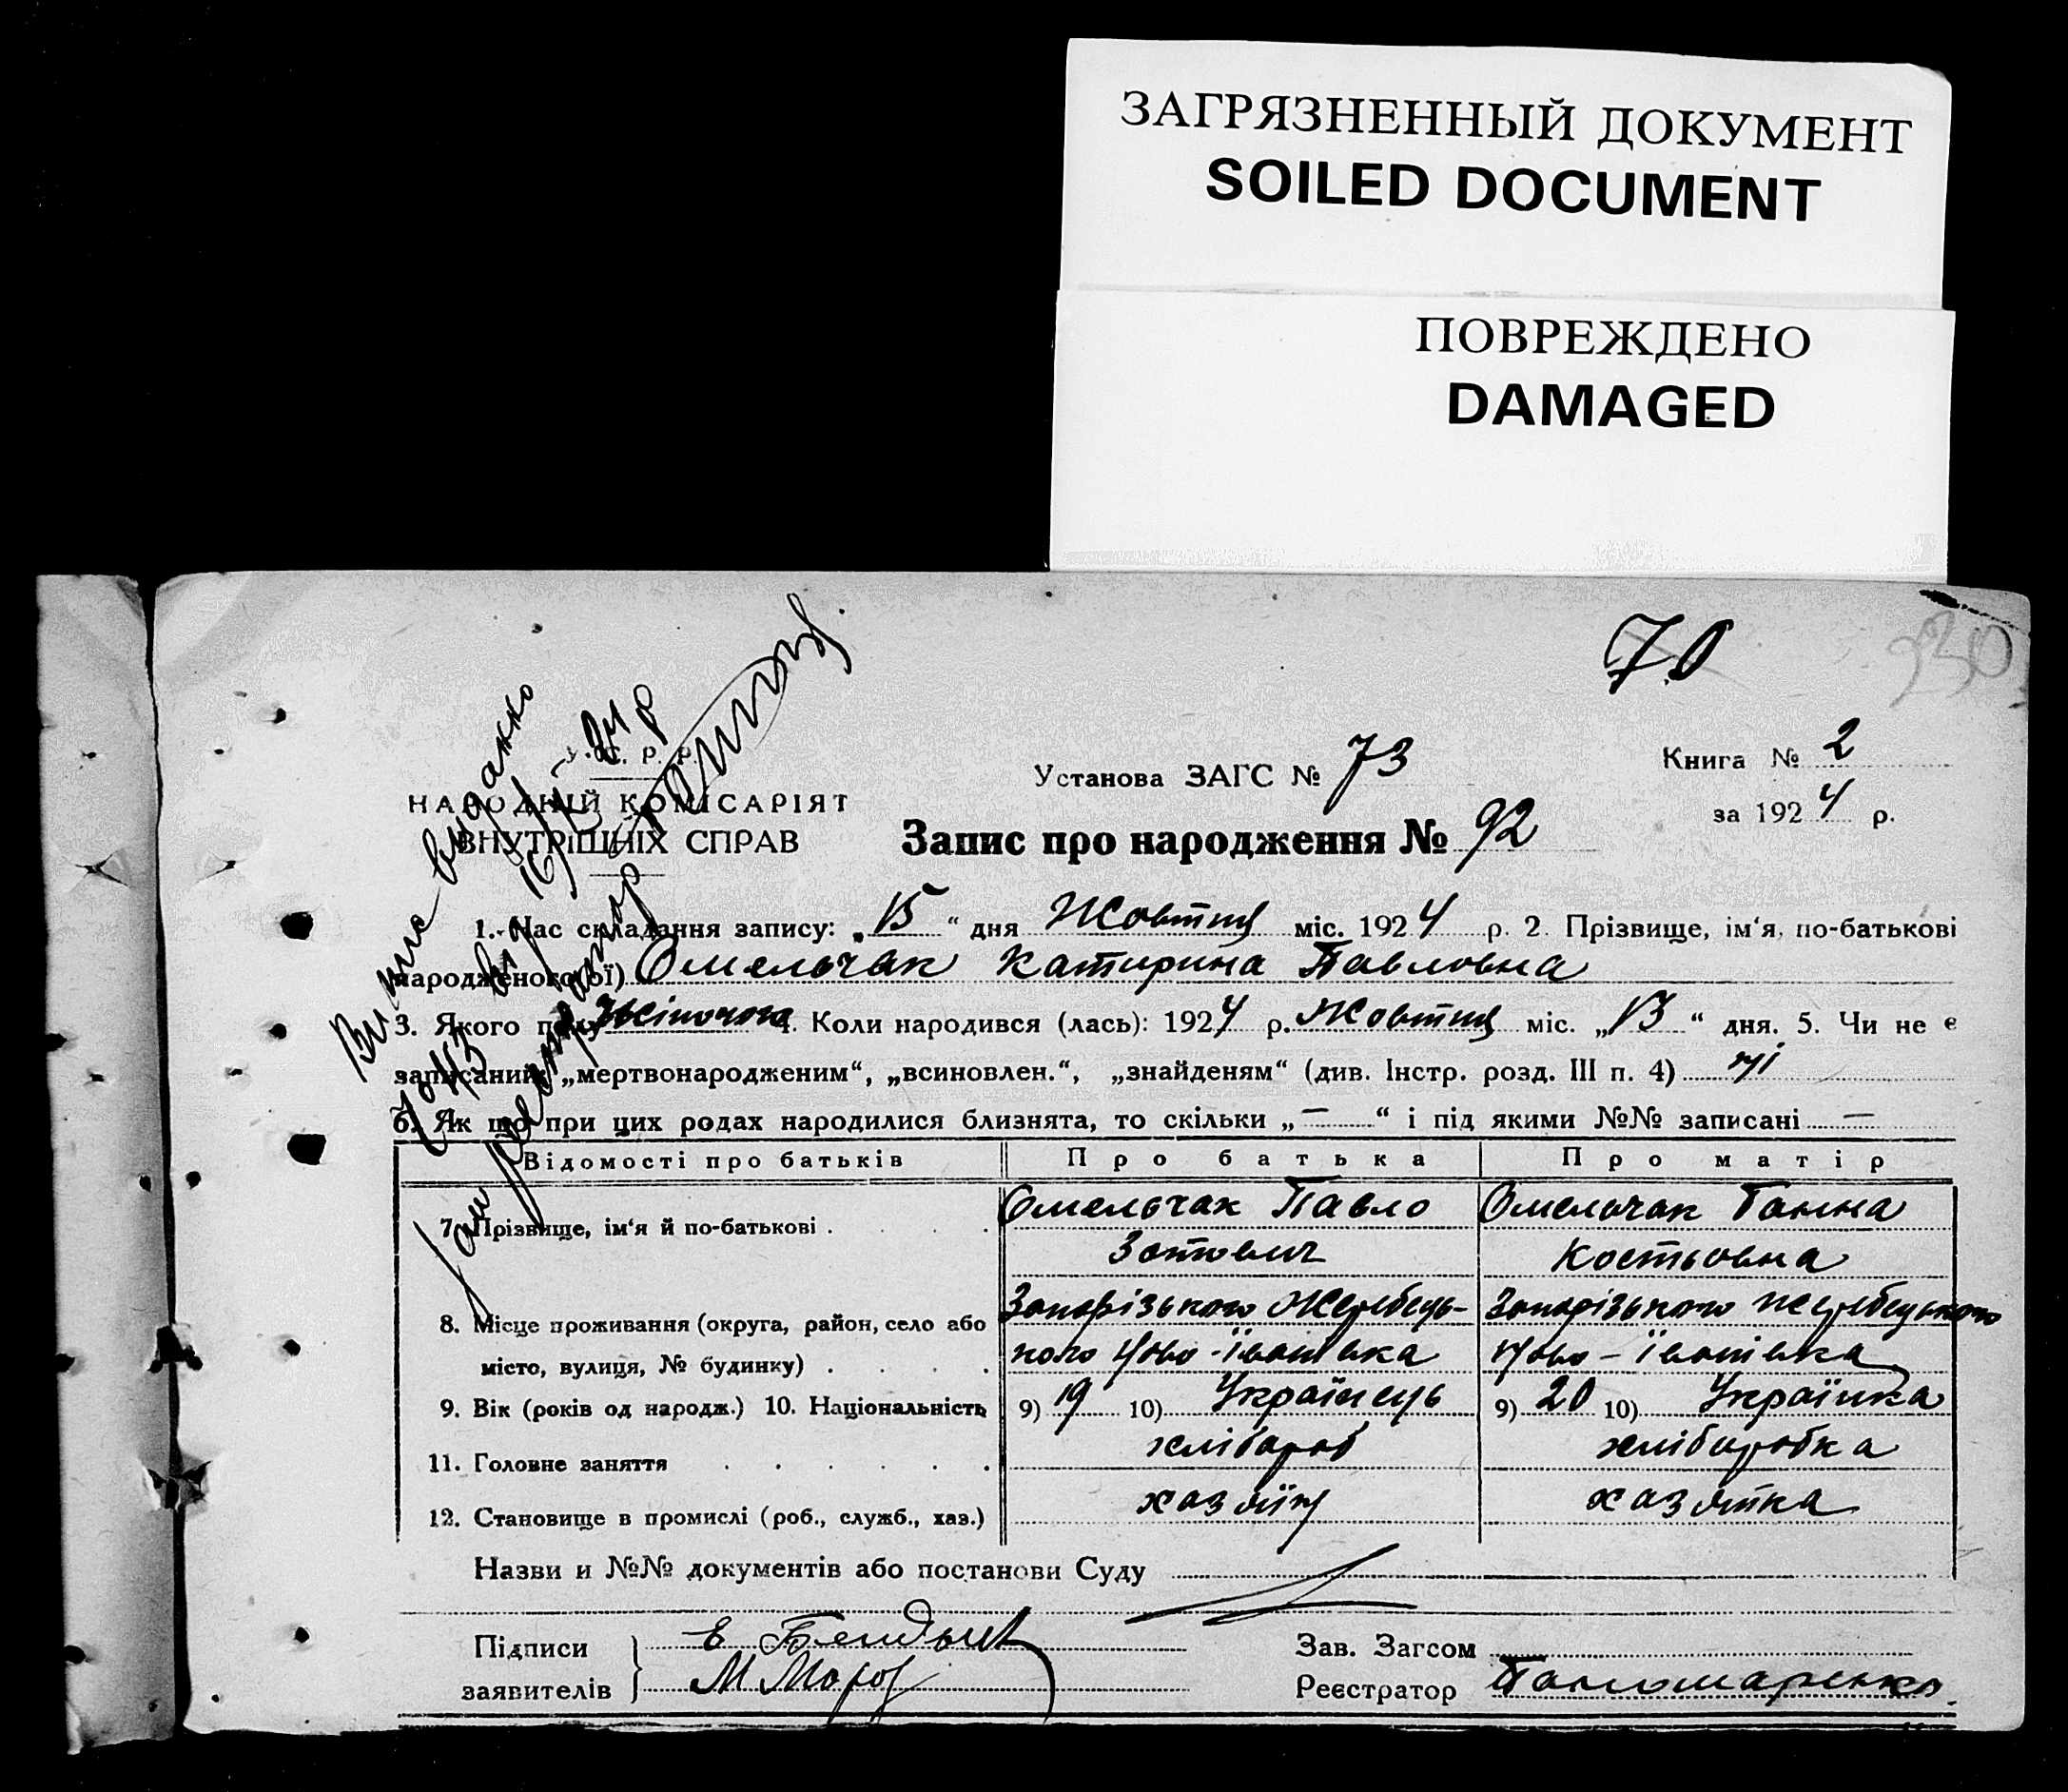 ЗАГРЯЗНЕННЫЙ ДОКУМЕНТ
SOILED DOCUMENT
ПОВРЕЖДЕНО
DAMAGED
70
230
У. С. Р. Р.
НАРОДНІЙ КОМІСАРІЯТ
ВНУТРІШНІХ СПРАВ
Установа ЗАГС № 73
Книга № 2
за 1924 р.
Запис про народження № 92
Випис видано
1. Час складання запису: „15“ дня Жовтня міс. 1924 р. 2. Прізвище, ім‘я, по-батькові
народженого(ої) Омельчак Катирина Павловна
3. Якого полу жіночого 4. Коли народився (лась): 1924 р. Жовтня міс. „13“ дня. 5. Чи не є
записаний: „мертвонародженим“, „всиновлен.“, „знайденям“ (див. Інстр. розд. III п. 4) ні
6. Як що при цих родах народилися близнята, то скільки „—“ і під якими №№ записані —
Відомості про батьків Про батька Про матір
7. Прізвище, ім‘я й по-батькові . . . . Омельчак Павло Зотович Омельчак Ганна Костьовна
8. Місце проживання (округа, район, село або Запорізького Жеребець- Запорізького Жеребецького
місто, вулиця, № будинку) . . . . кого Ново-Їванівка Ново-Їванівка
9. Вік (років од народж.) 10. Національність 9) 19 10) Українець 9) 20 10) Українка
11. Головне заняття . . . . . . хлібороб хліборобка
12. Становище в промислі (роб., служб., хаз.) хазяїн хазяйка
Назви и №№ документів або постанови Суду
Підписи заявителів
М Мороз
Зав. Загсом
Реєстратор Пономаренко.